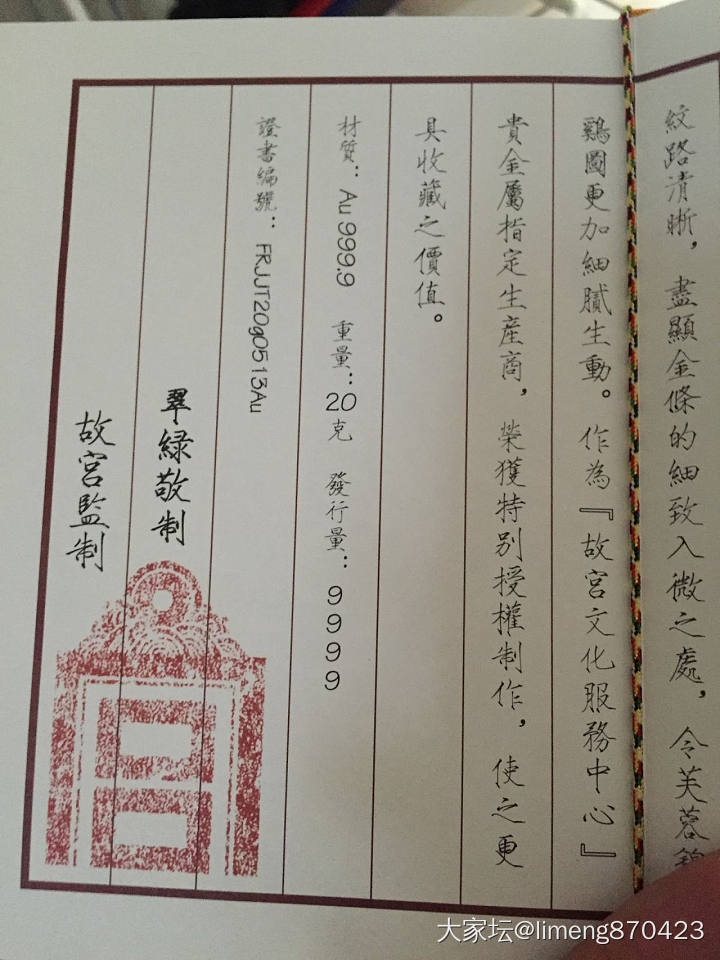 紋路清晰，盡顯金條的細致入微之處，令芙蓉錦
鷄圖更加細膩生動。作為『故宮文化服務中心』
貴金屬指定生産商，榮獲特别授權制作，使之更
具收藏之價值。
材質：Au 999.9 重量：20克 發行量：9999
證書編號：FRJJT20g0513Au
翠緑敬制
故宮監制
大家坛@limeng870423